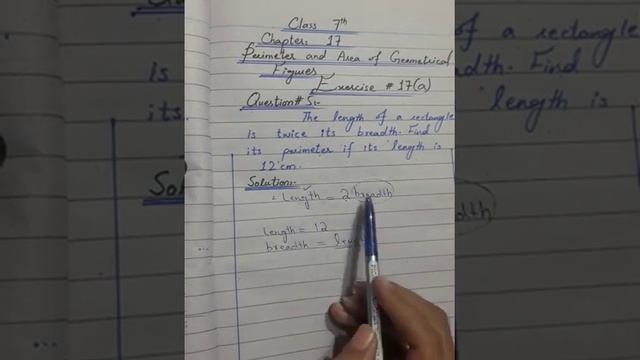 Class 7th
Chapter: 17
Perimeter and Area of Geometrical
Figures
Exercise # 17(a)
Question# 5:-
The length of a rectangle
is twice its breadth. Find
its perimeter if its length is
12 cm.
Solution:-
Length = 2 breadth
Length = 12
breadth =